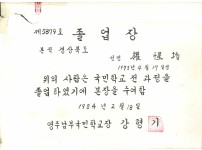 제5879호 졸업장
본적 경상북도
성명
1973년 4월 19일생
위의 사람은 국민학교 전 과정을
졸업하였기에 본장을 수여함
1984년 2월 18일
영주남부국민학교장 강형기